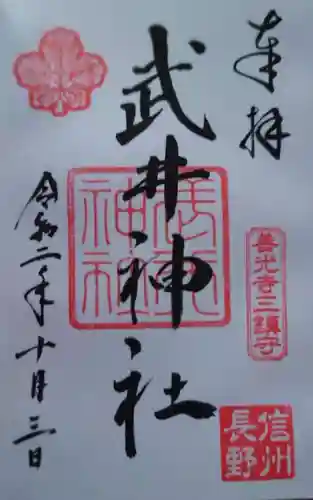 奉拝
武井神社
武井神社
善光寺三鎮守
信州
長野
令和二年十月三日